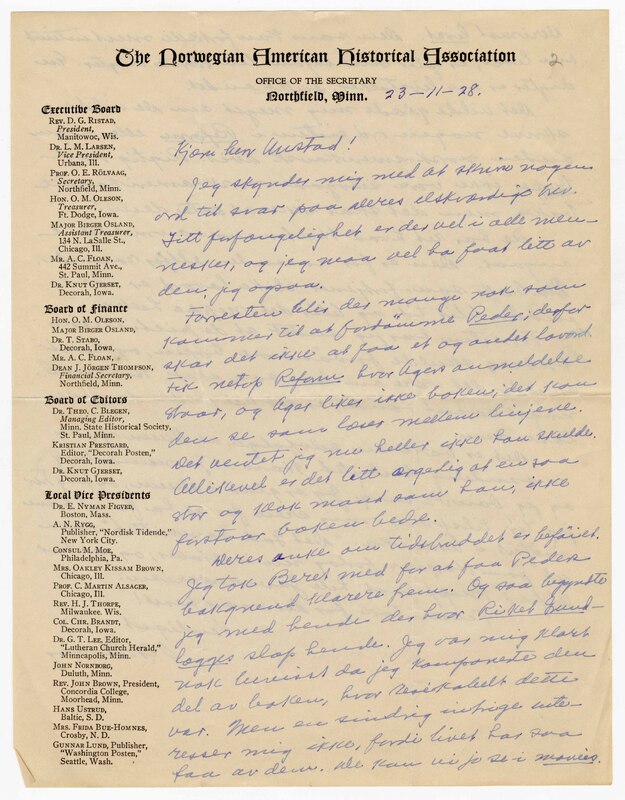 The Norwegian American Historical Association
2
OFFICE OF THE SECRETARY
Northfield, Minn.
23-11-28.
Executive Board
REV. D. G. RISTAD,
President,
Manitowoc, Wis.
DR. L. M. LARSEN,
Vice President,
Urbana, Ill.
PROF. O. E. RÖLVAAG,
Secretary,
Northfield, Minn.
HON. O. M. OLESON,
Treasurer,
Ft. Dodge, Iowa.
MAJOR BIRGER OSLAND,
Assistant Treasurer,
134 N. LaSalle St.,
Chicago, Ill.
MR. A. C. FLOAN,
442 Summit Ave.,
St. Paul, Minn.
DR. KNUT GJERSET,
Decorah, Iowa.
Board of Finance
HON. O. M. OLESON,
MAJOR BIRGER OSLAND,
DR. T. STABO,
Decorah, Iowa.
MR. A. C. FLOAN,
DEAN J. JÖRGEN THOMPSON,
Financial Secretary,
Northfield, Minn.
Board of Editors
DR. THEO. C. BLEGEN,
Managing Editor,
Minn. State Historical Society,
St. Paul, Minn.
KRISTIAN PRESTGARD,
Editor, "Decorah Posten,"
Decorah, Iowa.
DR. KNUT GJERSET,
Decorah, Iowa.
Local Vice Presidents
DR. E. NYMAN FIGVED,
Boston, Mass.
A. N. RYGG,
Publisher, "Nordisk Tidende,"
New York City.
CONSUL M. MOE,
Philadelphia, Pa.
MRS. OAKLEY KISSAM BROWN,
Chicago, Ill.
PROF. C. MARTIN ALSAGER,
Chicago, Ill.
REV. H. J. THORPE,
Milwaukee. Wis.
COL. CHR. BRANDT,
Decorah, Iowa.
DR. G. T. LEE, Editor,
"Lutheran Church Herald,"
Minneapolis, Minn.
JOHN NORNBORG,
Duluth, Minn.
REV. JOHN BROWN, President,
Concordia College,
Moorhead, Minn.
HANS USTRUD,
Baltic, S. D.
MRS. FRIDA BUE-HOMNES,
Crosby, N. D.
GUNNAR LUND, Publisher,
"Washington Posten,"
Seattle, Wash.
Kjære herr Anstad!
Jeg skynder mig med at skrive nogen
ord til svar paa deres elskværdige brev.
Litt forfængelighet er der vel i alle men-
nesker, og jeg maa vel ha faat litt av
den, jeg ogsaa.
Forresten blir der mange nok som
kommer til at fordömme Peder; derfor
skar det ikke at faa et og andet lovord.
Fik netop Reform hvor Agers anmeldelse
staar, og Ager likes ikke boken; det kan
den se som læser mellem linjene.
Det ventet jeg nu heller ikke han skulde.
Allikevel er det litt ærgerlig at en saa
stor og klok mand som han, ikke
forstaar boken bedre.
Deres anke om tidsbruddet er beföiet.
Jeg tok Beret med for at faa Peders
bakgrund klarere frem. Og saa begyndte
jeg med hende der hvor Riket Grund-
lægges slap hende. Jeg var mig klart
nok bevisst da jeg komponerte den
del av boken, hvor dette
var. Men en sindrig intrige inte-
resser mig ikke, fordi livet har saa
faa av dem. De kan vi jo se i movies.